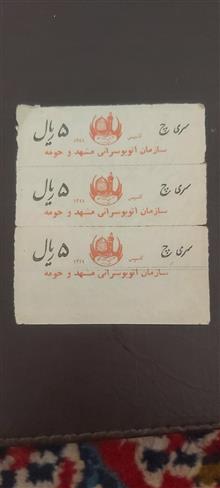 سری ج تأسیس ۱۳۴۸ ۵ ریال
سازمان اتوبوسرانی مشهد و حومه
سری ج تأسیس ۱۳۴۸ ۵ ریال
سازمان اتوبوسرانی مشهد و حومه
سری ج تأسیس ۱۳۴۸ ۵ ریال
سازمان اتوبوسرانی مشهد و حومه